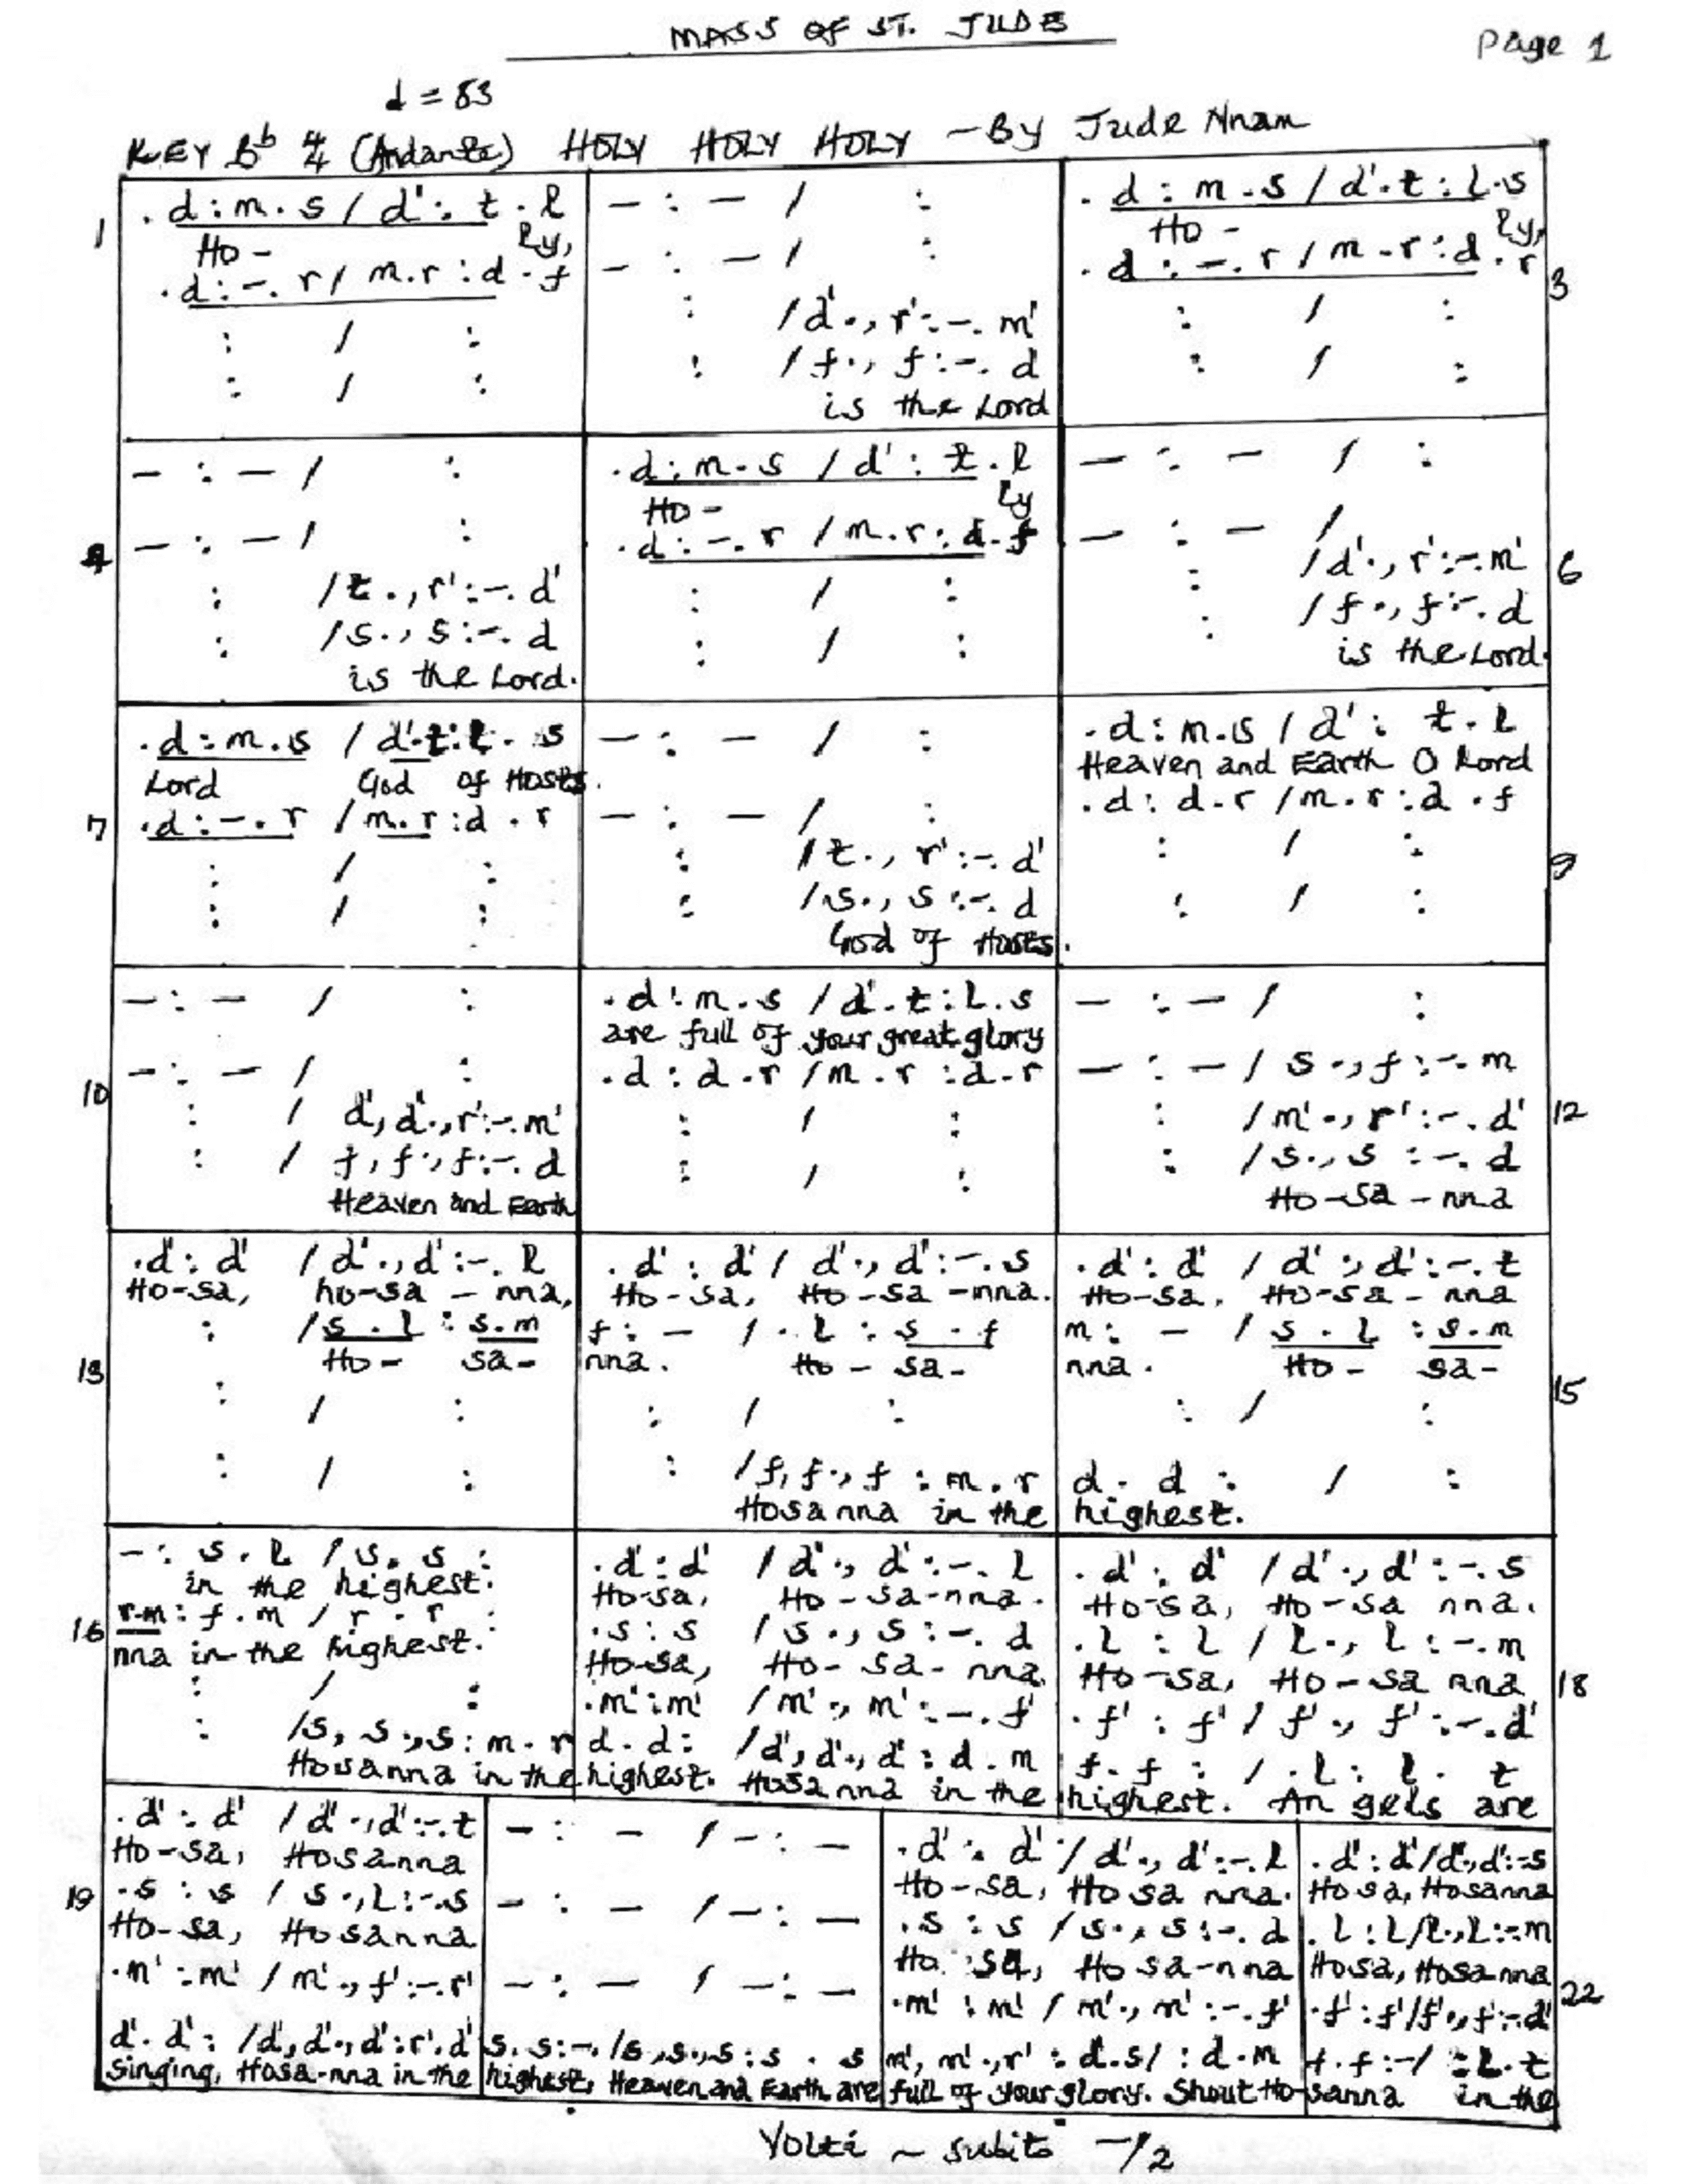 MASS OF ST. JUDE
Page 1
d = 83
KEY Bb 4/4 (Andante) HOLY HOLY HOLY - By Jude Nnam
1
. d : m . s / d' : t . l
Ho - ly,
. d : - . r / m . r : d . f
: / :
: / :
- : - / :
- : - / :
: / d' ., r' : - . m'
: / f ., f : - . d
is the Lord
. d : m . s / d' . t : l . s
Ho - ly,
. d : - . r / m . r : d . r
: / :
: / :
3
4
- : - / :
- : - / :
: / t ., r' : - . d'
: / s ., s : - . d
is the Lord.
. d : m . s / d' : t . l
Ho - ly
. d : - . r / m . r : d . f
: / :
: / :
- : - / :
- : - /
: / d' ., r' : - . m'
: / f ., f : - . d
is the Lord.
6
7
. d : m . s / d' . t : l . s
Lord God of Hosts.
. d : - . r / m . r : d . r
: / :
: / :
- : - / :
- : - / :
: / t ., r' : - . d'
: / s ., s : - . d
God of Hosts.
. d : m . s / d' : t . l
Heaven and Earth O Lord
. d : d . r / m . r : d . f
: / :
: / :
9
10
- : - / :
- : - / :
: / d' , d' ., r' : - . m'
: / f , f ., f : - . d
Heaven and Earth
. d : m . s / d' . t : l . s
are full of your great glory
. d : d . r / m . r : d . r
: / :
: / :
- : - / :
- : - / s ., f : - . m
: / m' ., r' : - . d'
: / s ., s : - . d
Ho - sa - nna
12
13
. d' : d' / d' ., d' : - . l
Ho-sa, ho-sa - nna,
: / s . l : s . m
Ho - sa -
: / :
: / :
. d' : d' / d' ., d' : - . s
Ho - sa, Ho - sa - nna.
f : - / . l : s . f
nna. Ho - sa -
: / :
: / f , f ., f : m . r
Hosanna in the
. d' : d' / d' ., d' : - . t
Ho - sa, Ho - sa - nna
m : - / s . l : s . m
nna. Ho - sa -
: / :
d . d : / :
highest.
15
16
- : s . l / s . s :
in the highest.
r . m : f . m / r . r :
nna in the highest.
: / :
: / s , s ., s : m . r
Hosanna in the
. d' : d' / d' ., d' : - . l
Ho-sa, Ho - sa - nna.
. s : s / s ., s : - . d
Ho-sa, Ho - sa - nna.
. m' : m' / m' ., m' : - . f'
d . d : / d' , d' ., d' : d . m
highest. Hosanna in the
. d' : d' / d' ., d' : - . s
Ho-sa, Ho - sa nna.
. l : l / l ., l : - . m
Ho - sa, Ho - sa nna
. f' : f' / f' ., f' : - . d'
f . f : / . l : l . t
highest. An gels are
18
19
. d' : d' / d' ., d' : - . t
Ho-sa, Hosanna
. s : s / s ., l : - . s
Ho-sa, Hosanna
. m' : m' / m' ., f' : - . r'
d' . d' : / d' , d' ., d' : r' . d'
singing, Hosa-nna in the
- : - / - : -
- : - / - : -
- : - / - : -
s . s : - . / s , s ., s : s . s
highest, Heaven and Earth are
. d' : d' / d' ., d' : - . l
Ho-sa, Hosa nna.
. s : s / s ., s : - . d
Ho sa, Ho sa-nna
. m' : m' / m' ., m' : - . f'
m' , m' ., r' : d . s / : d . m
full of your glory. Shout Ho-
. d' : d' / d' ., d' : - s
Hosa, Hosanna
. l : l / l ., l : - m
Hosa, Hosanna
. f' : f' / f' ., f' : - d'
f . f : - / : l . t
sanna in the
22
Volti ~ subito -/2